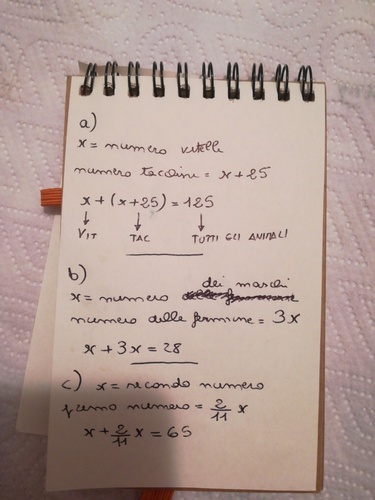 a)
x = numero vitelli
numero tacchine = x + 25
x + (x + 25) = 125
VIT TAC TUTTI GLI ANIMALI
b)
dei maschi
x = numero
numero delle femmine = 3x
x + 3x = 28
c) x = secondo numero
primo numero = 2/11 x
x + 2/11 x = 65